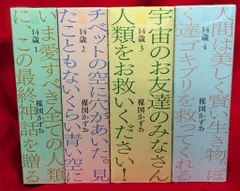 14歳 1 楳図かずお
いま愛すべき全ての人々
に、この最終神話を贈る
14歳 2 楳図かずお
チベットの空に穴があいた。見
たこともないくらい青い空に
14歳 3 楳図かずお
宇宙のお友達のみなさん
人類をお救いください!
14歳 4 楳図かずお
人間は美しく賢い生き物。ぼ
く達ゴキブリを救ってくれる